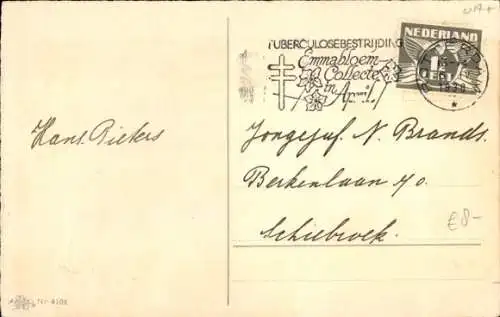 TUBERCULOSEBESTRIJDING
Emmabloem
Collecte
in April
NEDERLAND
Hans Piekers
Jongejuf. N. Brands.
Berkenlaan 70.
Schiebroek.
€8-
Nr 4108